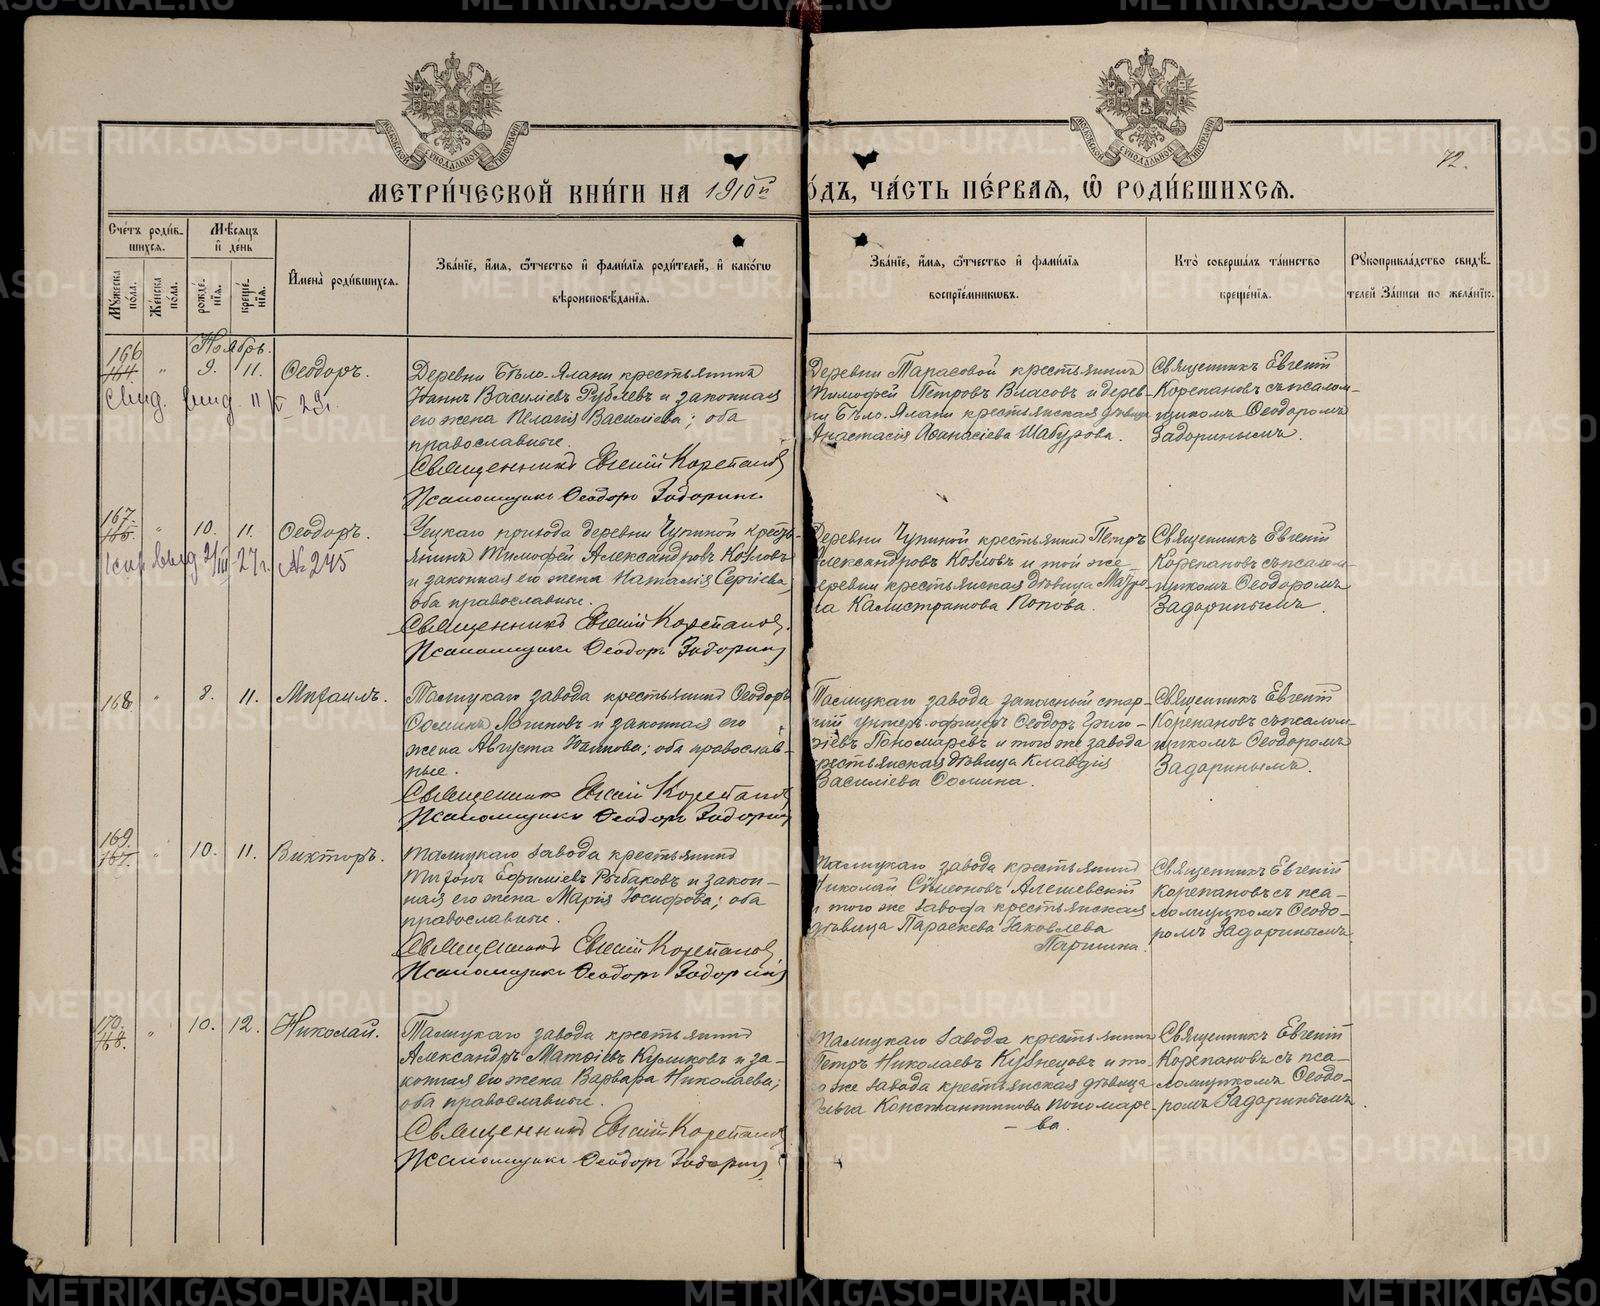 МОСКОВСКОЙ СѴНОДАЛЬНОЙ ТИПОГРАФІИ
МОСКОВСКОЙ СѴНОДАЛЬНОЙ ТИПОГРАФІИ
72.
МЕТРИ́ЧЕСКОЙ КНИ́ГИ НА 1910й
о́дъ, ЧА́СТЬ ПЕ́РВАѦ, Ѡ҆ РОДИ́ВШИХСѦ.
Сче́тъ роди́вшихсѧ.
Мꙋ́жеска по́ла.
Же́нска по́ла.
Мѣ́сѧцъ и҆ де́нь
рожде́нїѧ.
креще́нїѧ.
И҆мена̀ роди́вшихсѧ.
Зва́нїе, и҆́мѧ, ѻ҆́тчество и҆ фами́лїѧ роди́телей, и҆ како́гѡ
вѣроисповѣ́данїѧ.
Зва́нїе, и҆́мѧ, ѻ҆́тчество и҆ фами́лїѧ
воспрїе́мникѡвъ.
Кто̀ соверша́лъ та́инство
креще́нїѧ.
Рꙋкоприкла́дство свидѣ́-
телей за́писи по жела́нїю.
Ноябрь.
166
164.
"
9.
11.
Ѳеодоръ.
Деревни Бѣло-Ялани крестьянинъ
Іоаннъ Василіевъ Рублевъ и законная
его жена Пелагія Василіева; оба
православные.
Священникъ Евгеній Корепановъ
Псаломщикъ Ѳеодоръ Задоринъ
Деревни Тарасовой крестьянинъ
Тимофей Петровъ Власовъ и дерев-
ни Бѣло-Ялани крестьянская дѣвица
Анастасія Аѳанасіева Шабурова.
Священникъ Евгеній
Корепановъ съ псалом-
щикомъ Ѳеодоромъ
Задоринымъ.
167.
165.
"
10.
11.
Ѳеодоръ.
27 г. № 245
Уецкаго прихода деревни Чупиной кресть-
янинъ Тимофей Александровъ Козловъ
и законная его жена Наталія Сергіева;
оба православные.
Священникъ Евгеній Корепановъ.
Псаломщикъ Ѳеодоръ Задоринъ
Деревни Чупиной крестьянинъ Петръ
Александровъ Козловъ и той же
деревни крестьянская дѣвица Матро-
на Калистратова Попова.
Священникъ Евгеній
Корепановъ съ псалом-
щикомъ Ѳеодоромъ
Задоринымъ.
168.
"
8.
11.
Михаилъ.
Талицкаго завода крестьянинъ Ѳеодоръ
Ѳоминъ Логиновъ и законная его
жена Августа Іоаннова; оба православ-
ные.
Священникъ Евгеній Корепановъ
Псаломщикъ Ѳеодоръ Задоринъ
Талицкаго завода запасный стар-
шій унтеръ-офицеръ Ѳеодоръ Григо-
ріевъ Пономаревъ и того же завода
крестьянская дѣвица Клавдія
Василіева Ѳомина.
Священникъ Евгеній
Корепановъ съ псалом-
щикомъ Ѳеодоромъ
Задоринымъ.
169.
167.
"
10.
11.
Викторъ.
Талицкаго завода крестьянинъ
Тихонъ Ефиміевъ Рыбаковъ и закон-
ная его жена Марія Іосифова; оба
православные.
Священникъ Евгеній Корепановъ.
Псаломщикъ Ѳеодоръ Задоринъ
Талицкаго завода крестьянинъ
Николай Сѵмеоновъ Алешевскій
и того же завода крестьянская
дѣвица Параскева Іаковлева
Паршина.
Священникъ Евгеній
Корепановъ съ пса-
ломщикомъ Ѳеодо-
ромъ Задоринымъ.
170.
168.
"
10.
12.
Николай.
Талицкаго завода крестьянинъ
Александръ Матѳіевъ Куликовъ и за-
конная его жена Варвара Николаева;
оба православные.
Священникъ Евгеній Корепановъ
Псаломщикъ Ѳеодоръ Задоринъ.
Талицкаго завода крестьянинъ
Петръ Николаевъ Кузнецовъ и то-
го же завода крестьянская дѣвица
Ольга Константинова Пономаре-
- ва.
Священникъ Евгеній
Корепановъ съ пса-
ломщикомъ Ѳеодо-
ромъ Задоринымъ.
METRIKI.GASO-URAL.RU